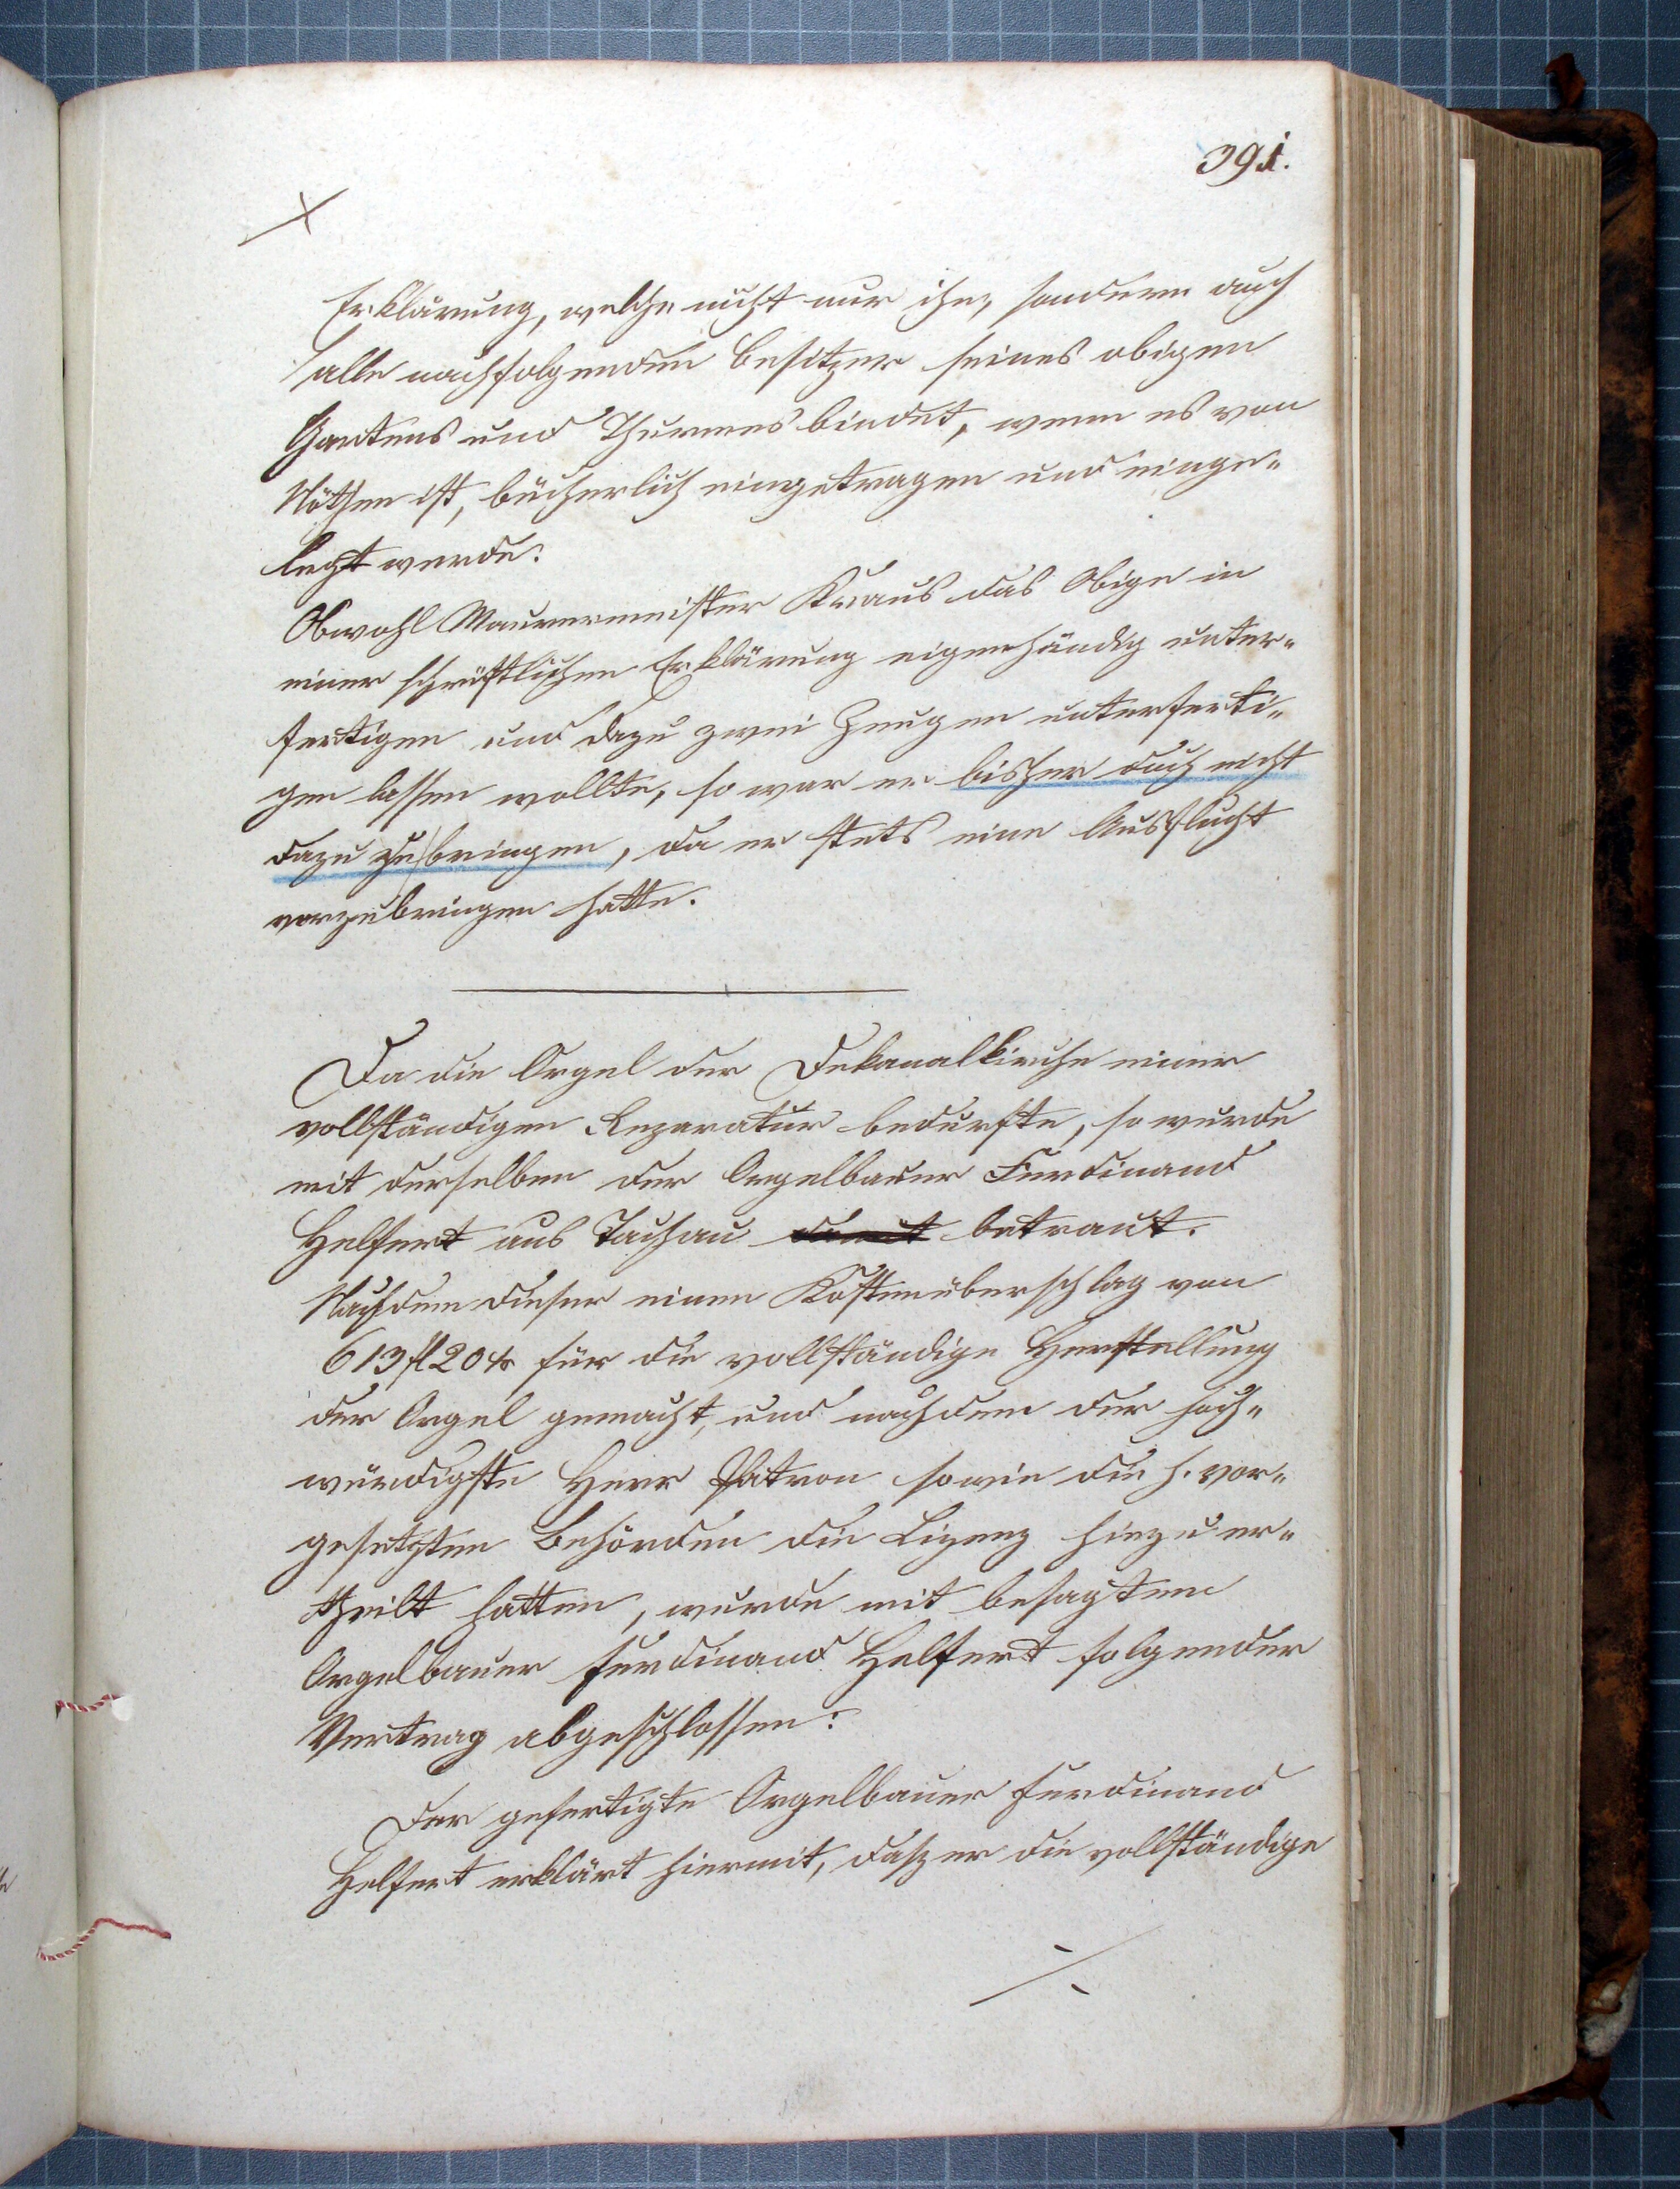 391.
Erklärung, welche nicht nur ihn, sondern auch
alle nachfolgenden Besitzer seines obigen
Gartens und Thurmes bindet, wenn es von
Nöthen ist, bücherlich eingetragen und einge-
legt werde.
Obwohl Maurermeister Kraus das Obige in
einer schriftlichen Erklärung eigenhändig unter-
fertigen und dazu zwei Zeugen unterferti-
gen lassen wollte, so war er bisher doch nicht
dazu zu bringen, da er stets eine Ausflucht
vorzubringen hatte.
Da die Orgel der Dekanalkirche einer
vollständigen Reparatur bedurfte, so wurde
mit derselben der Orgelbauer Ferdinand
Helfert aus Tachau damit betraut.
Nachdem dieser einen Kostenüberschlag von
613 fl 20 kr für die vollständige Herstellung
der Orgel gemacht, und nachdem der hoch-
würdigste Herr Patron sowie die h. vor-
gesetzten Behörden die Lizenz hiezu er-
theilt hatten, wurde mit besagtem
Orgelbauer Ferdinand Helfert folgender
Vertrag abgeschlossen:
Der gefertigte Orgelbauer Ferdinand
Helfert erklärt hiermit, dasz er die vollständige